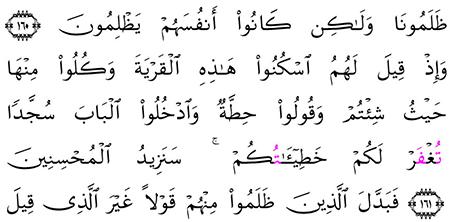 ظَلَمُونَا وَلَـٰكِن كَانُوٓا۟ أَنفُسَهُمْ يَظْلِمُونَ ١٦٥
وَإِذْ قِيلَ لَهُمُ ٱسْكُنُوا۟ هَـٰذِهِ ٱلْقَرْيَةَ وَكُلُوا۟ مِنْهَا
حَيْثُ شِئْتُمْ وَقُولُوا۟ حِطَّةٌ وَٱدْخُلُوا۟ ٱلْبَابَ سُجَّدًا
تُغْفَرْ لَكُمْ خَطِيٓـَٔـٰتُكُمْ ۚ سَنَزِيدُ ٱلْمُحْسِنِينَ
١٦١ فَبَدَّلَ ٱلَّذِينَ ظَلَمُوا۟ مِنْهُمْ قَوْلًا غَيْرَ ٱلَّذِى قِيلَ